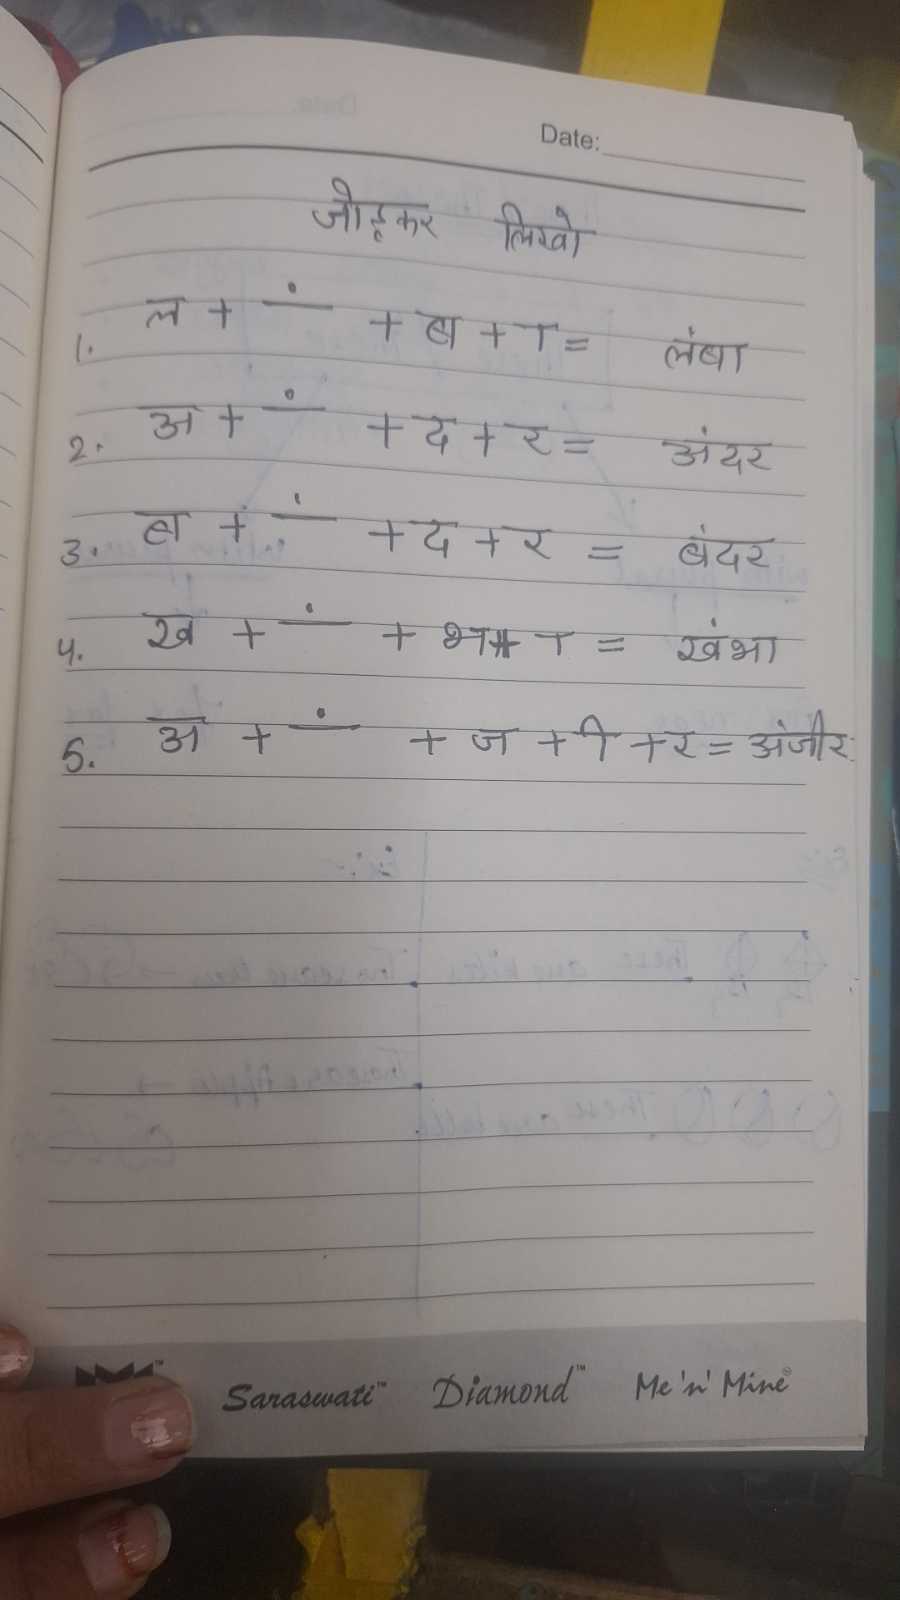 Date:
जोड़कर लिखो
1. ल + ं + ब + ा = लंबा
2. अ + ं + द + र = अंदर
3. ब + ं + द + र = बंदर
4. ख + ं + भ + ा = खंभा
5. अ + ं + ज + ी + र = अंजीर
Saraswati™ Diamond™ Me 'n' Mine®